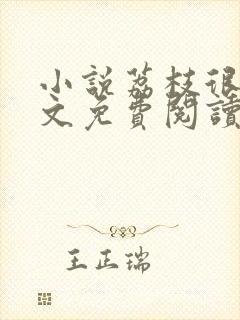 小説荔枝很
文免費閱讀
王正瑞